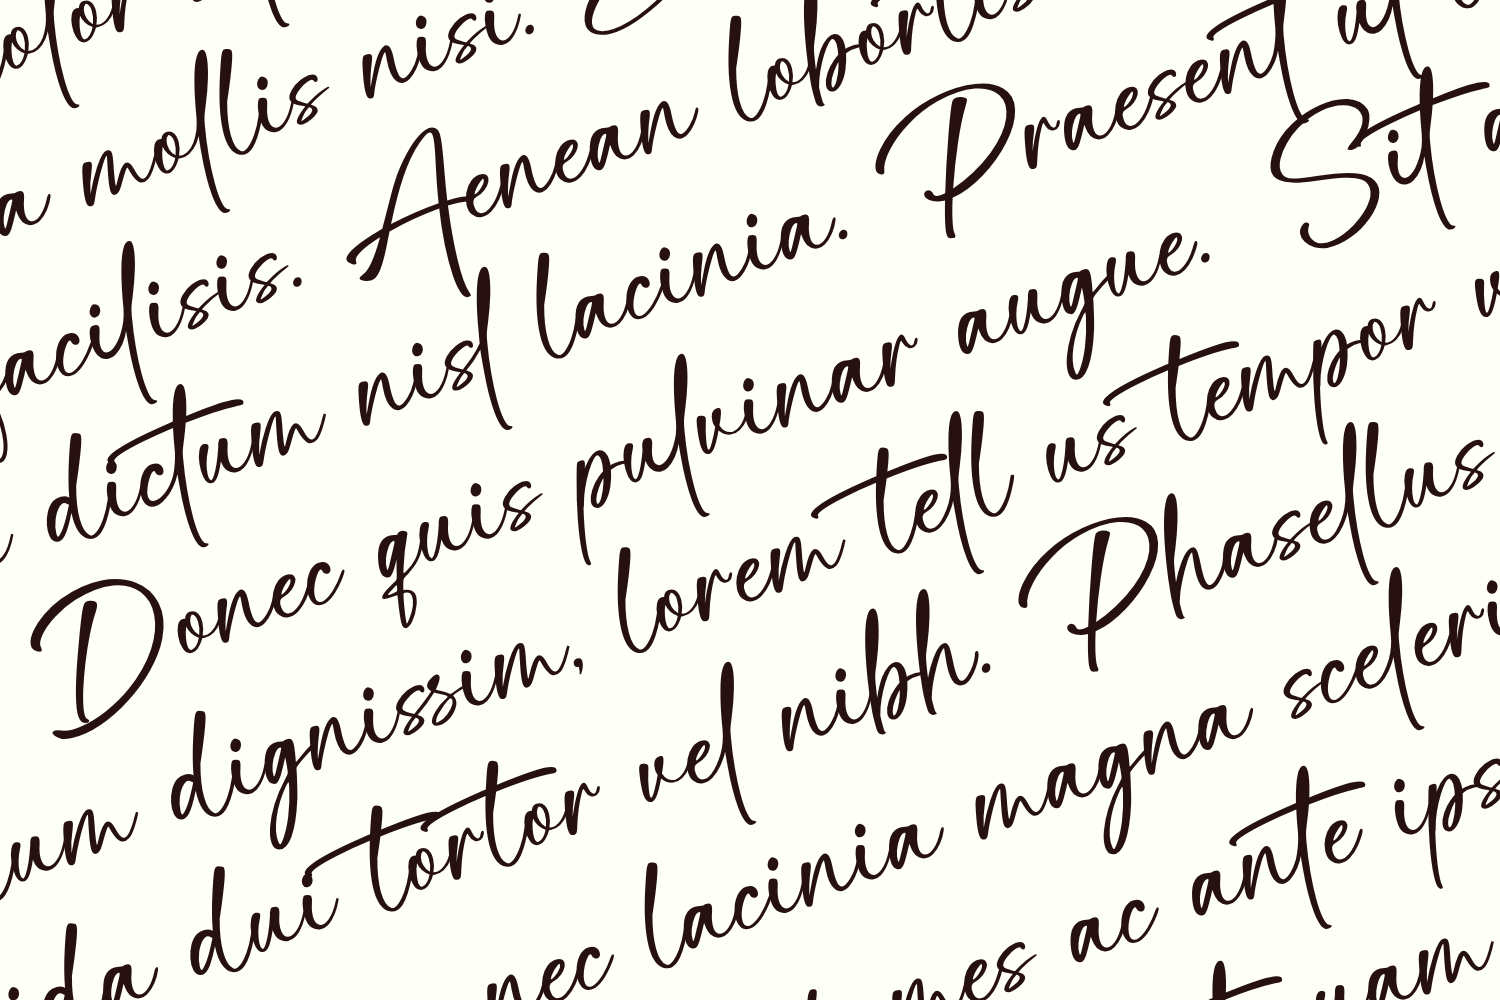 olor
a mollis nisi.
acilisis. Aenean lobortis
dictum nisl lacinia. Praesent ut
Donec quis pulvinar augue. Sit a
um dignissim, lorem tell us tempor v
ida dui tortor vel nibh. Phasellus
nec lacinia magna sceleri
mes ac ante ips
uam